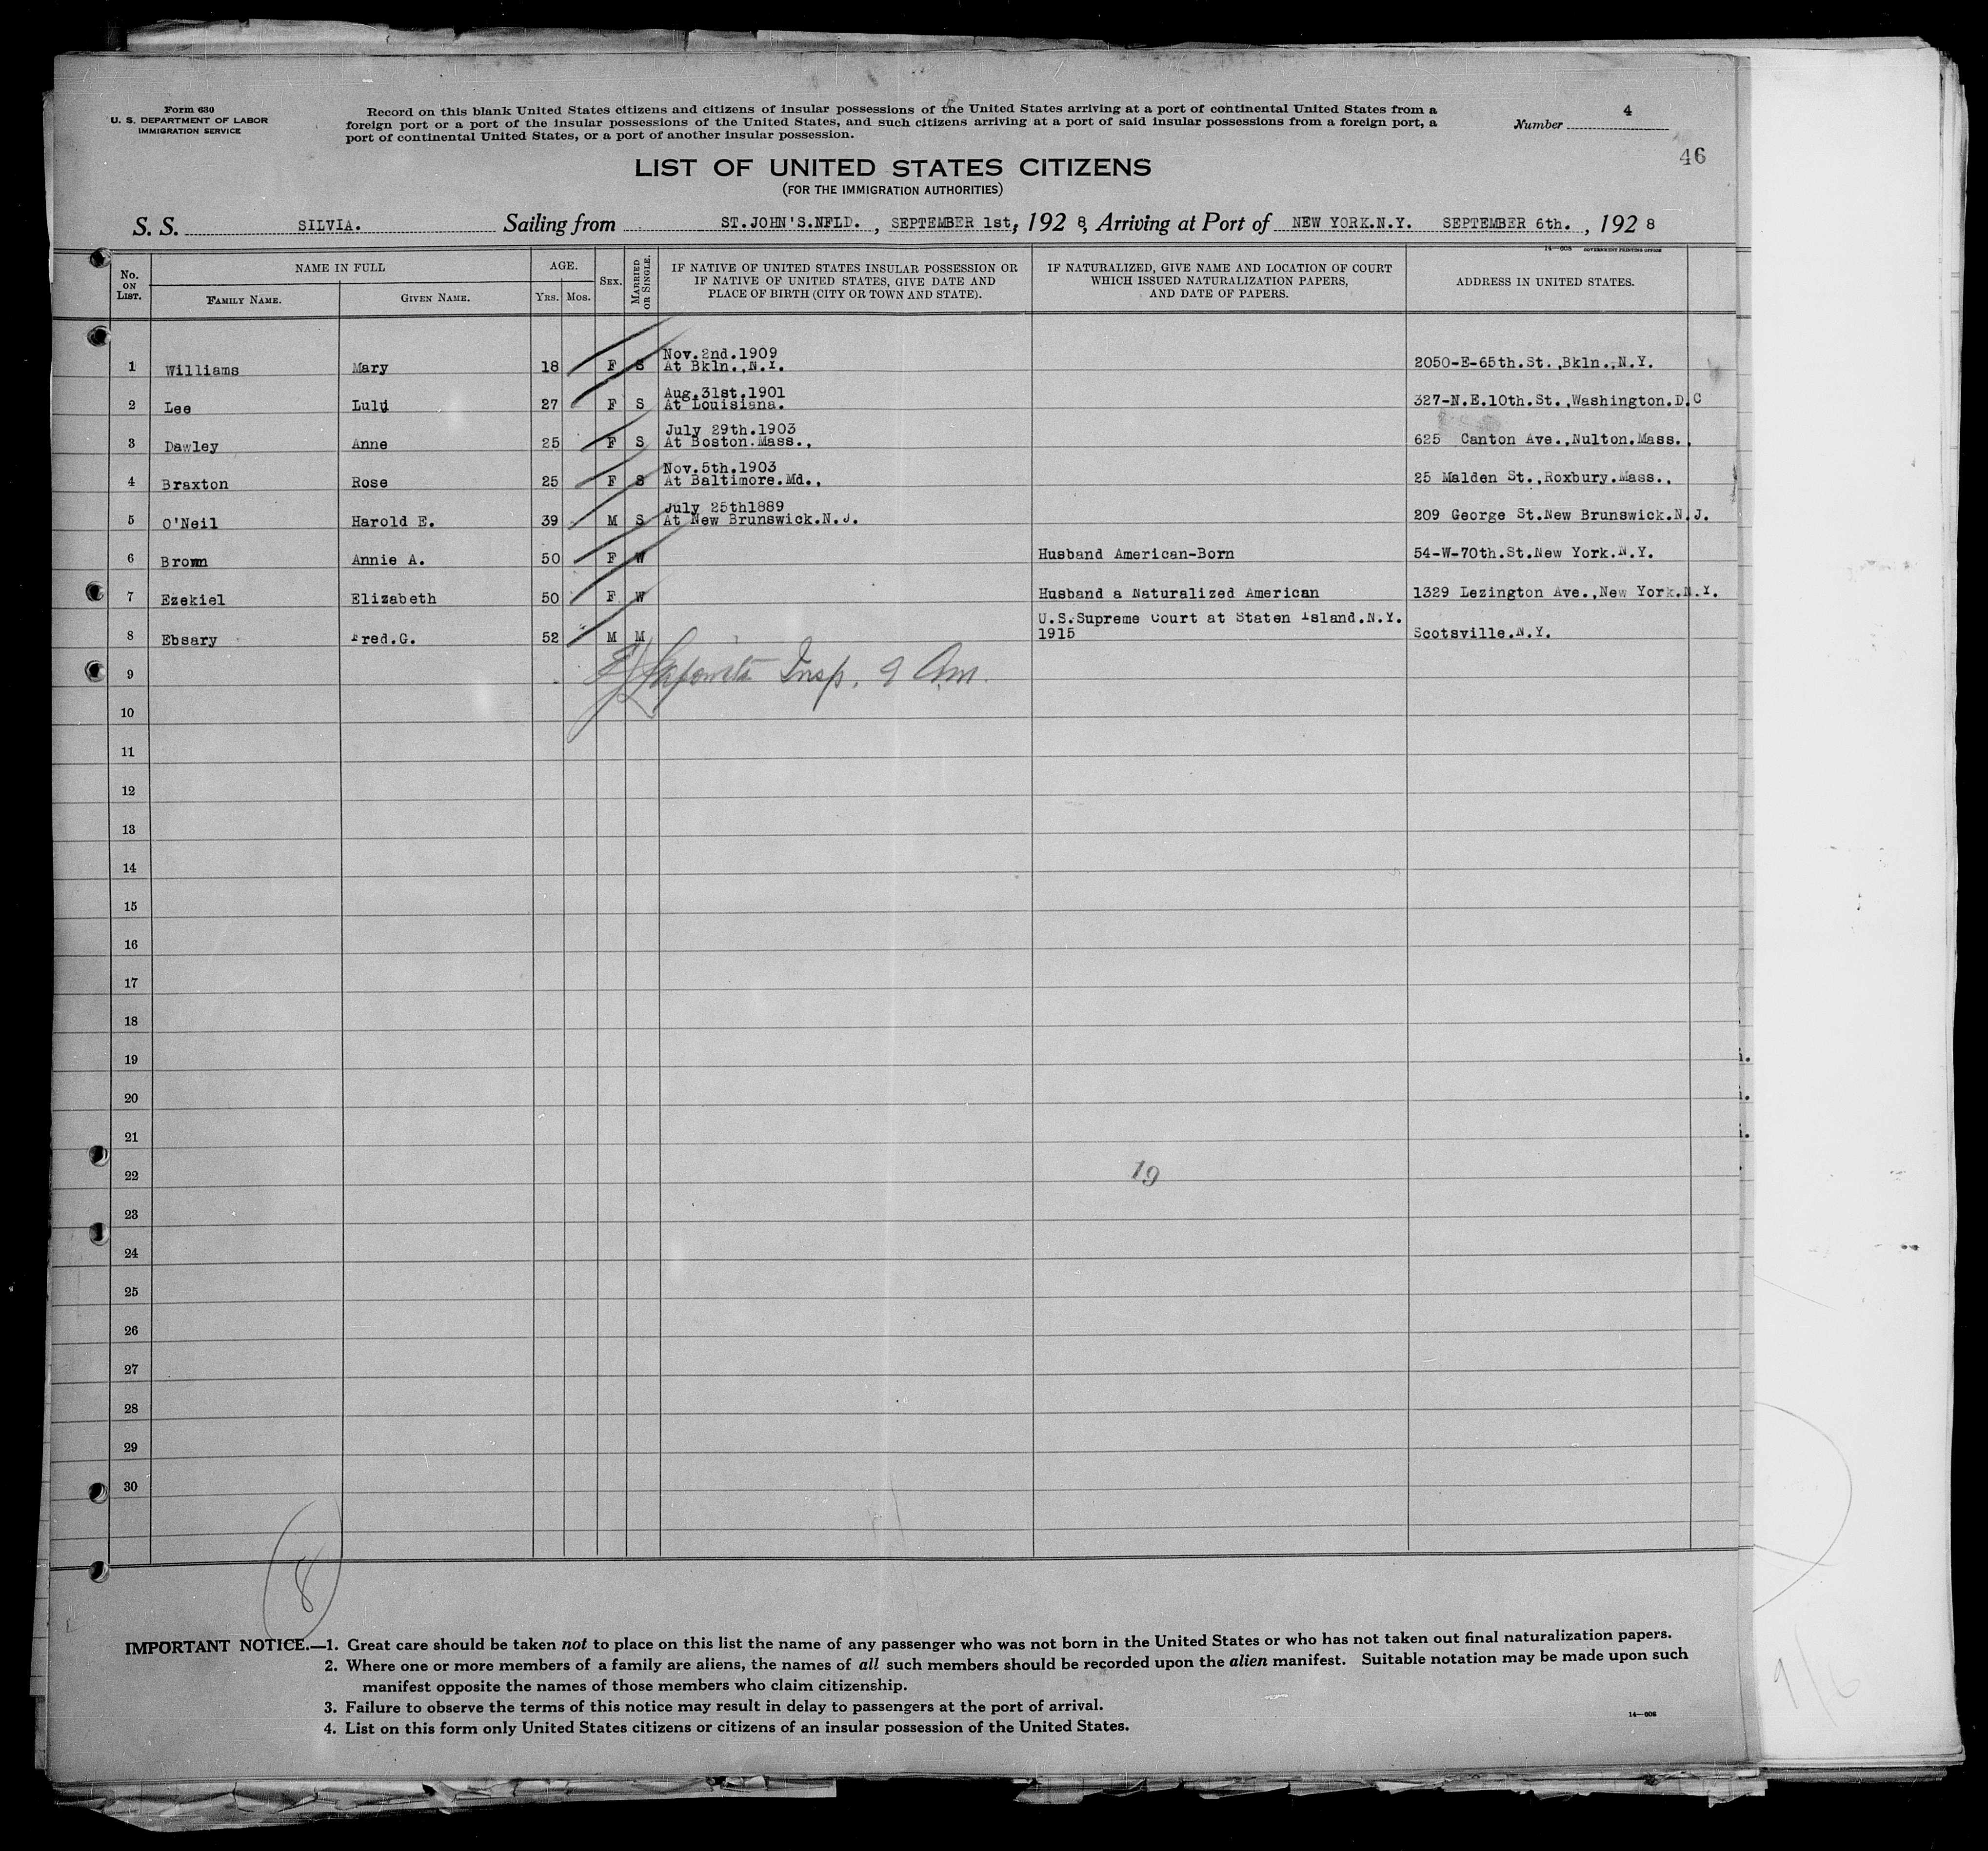 Form 630
U. S. DEPARTMENT OF LABOR
IMMIGRATION SERVICE
Record on this blank United States citizens and citizens of insular possessions of the United States arriving at a port of continental United States from a
foreign port or a port of the insular possessions of the United States, and such citizens arriving at a port of said insular possessions from a foreign port, a
port of continental United States, or a port of another insular possession.
Number 4
46
LIST OF UNITED STATES CITIZENS
(FOR THE IMMIGRATION AUTHORITIES)
S. S. SILVIA. Sailing from ST.JOHN'S.NFLD. , SEPTEMBER 1st, 192 8, Arriving at Port of NEW YORK.N.Y. SEPTEMBER 6th. , 192 8
14—608 GOVERNMENT PRINTING OFFICE
No. ON LIST. NAME IN FULL FAMILY NAME. GIVEN NAME. AGE. YRS. MOS. SEX. MARRIED OR SINGLE. IF NATIVE OF UNITED STATES INSULAR POSSESSION OR IF NATIVE OF UNITED STATES, GIVE DATE AND PLACE OF BIRTH (CITY OR TOWN AND STATE). IF NATURALIZED, GIVE NAME AND LOCATION OF COURT WHICH ISSUED NATURALIZATION PAPERS, AND DATE OF PAPERS. ADDRESS IN UNITED STATES.
Nov.2nd.1909
1 Williams Mary 18 F S At Bkln.,N.Y. 2050-E-65th.St.,Bkln.,N.Y.
Aug.31st.1901
2 Lee Lulu 27 F S At Louisiana. 327-N.E.10th.St.,Washington.D.C
July 29th.1903
3 Dawley Anne 25 F S At Boston.Mass., 625 Canton Ave.,Nulton.Mass.,
Nov.5th.1903
4 Braxton Rose 25 F S At Baltimore.Md., 25 Malden St.,Roxbury.Mass.,
July 25th1889
5 O'Neil Harold E. 39 M S At New Brunswick.N.J. 209 George St.New Brunswick.N.J.
6 Brown Annie A. 50 F W Husband American-Born 54-W-70th.St.New York.N.Y.
7 Ezekiel Elizabeth 50 F W Husband a Naturalized American 1329 Lezington Ave.,New York.N.Y.
U.S.Supreme Court at Staten Island.N.Y.
8 Ebsary Fred.G. 52 M M 1915 Scotsville.N.Y.
9 Insp. 9 Am.
10
11
12
13
14
15
16
17
18
19
20
21
22
19
23
24
25
26
27
28
29
30
8
IMPORTANT NOTICE.—1. Great care should be taken not to place on this list the name of any passenger who was not born in the United States or who has not taken out final naturalization papers.
2. Where one or more members of a family are aliens, the names of all such members should be recorded upon the alien manifest. Suitable notation may be made upon such
manifest opposite the names of those members who claim citizenship.
3. Failure to observe the terms of this notice may result in delay to passengers at the port of arrival.
4. List on this form only United States citizens or citizens of an insular possession of the United States.
14—608
9/6